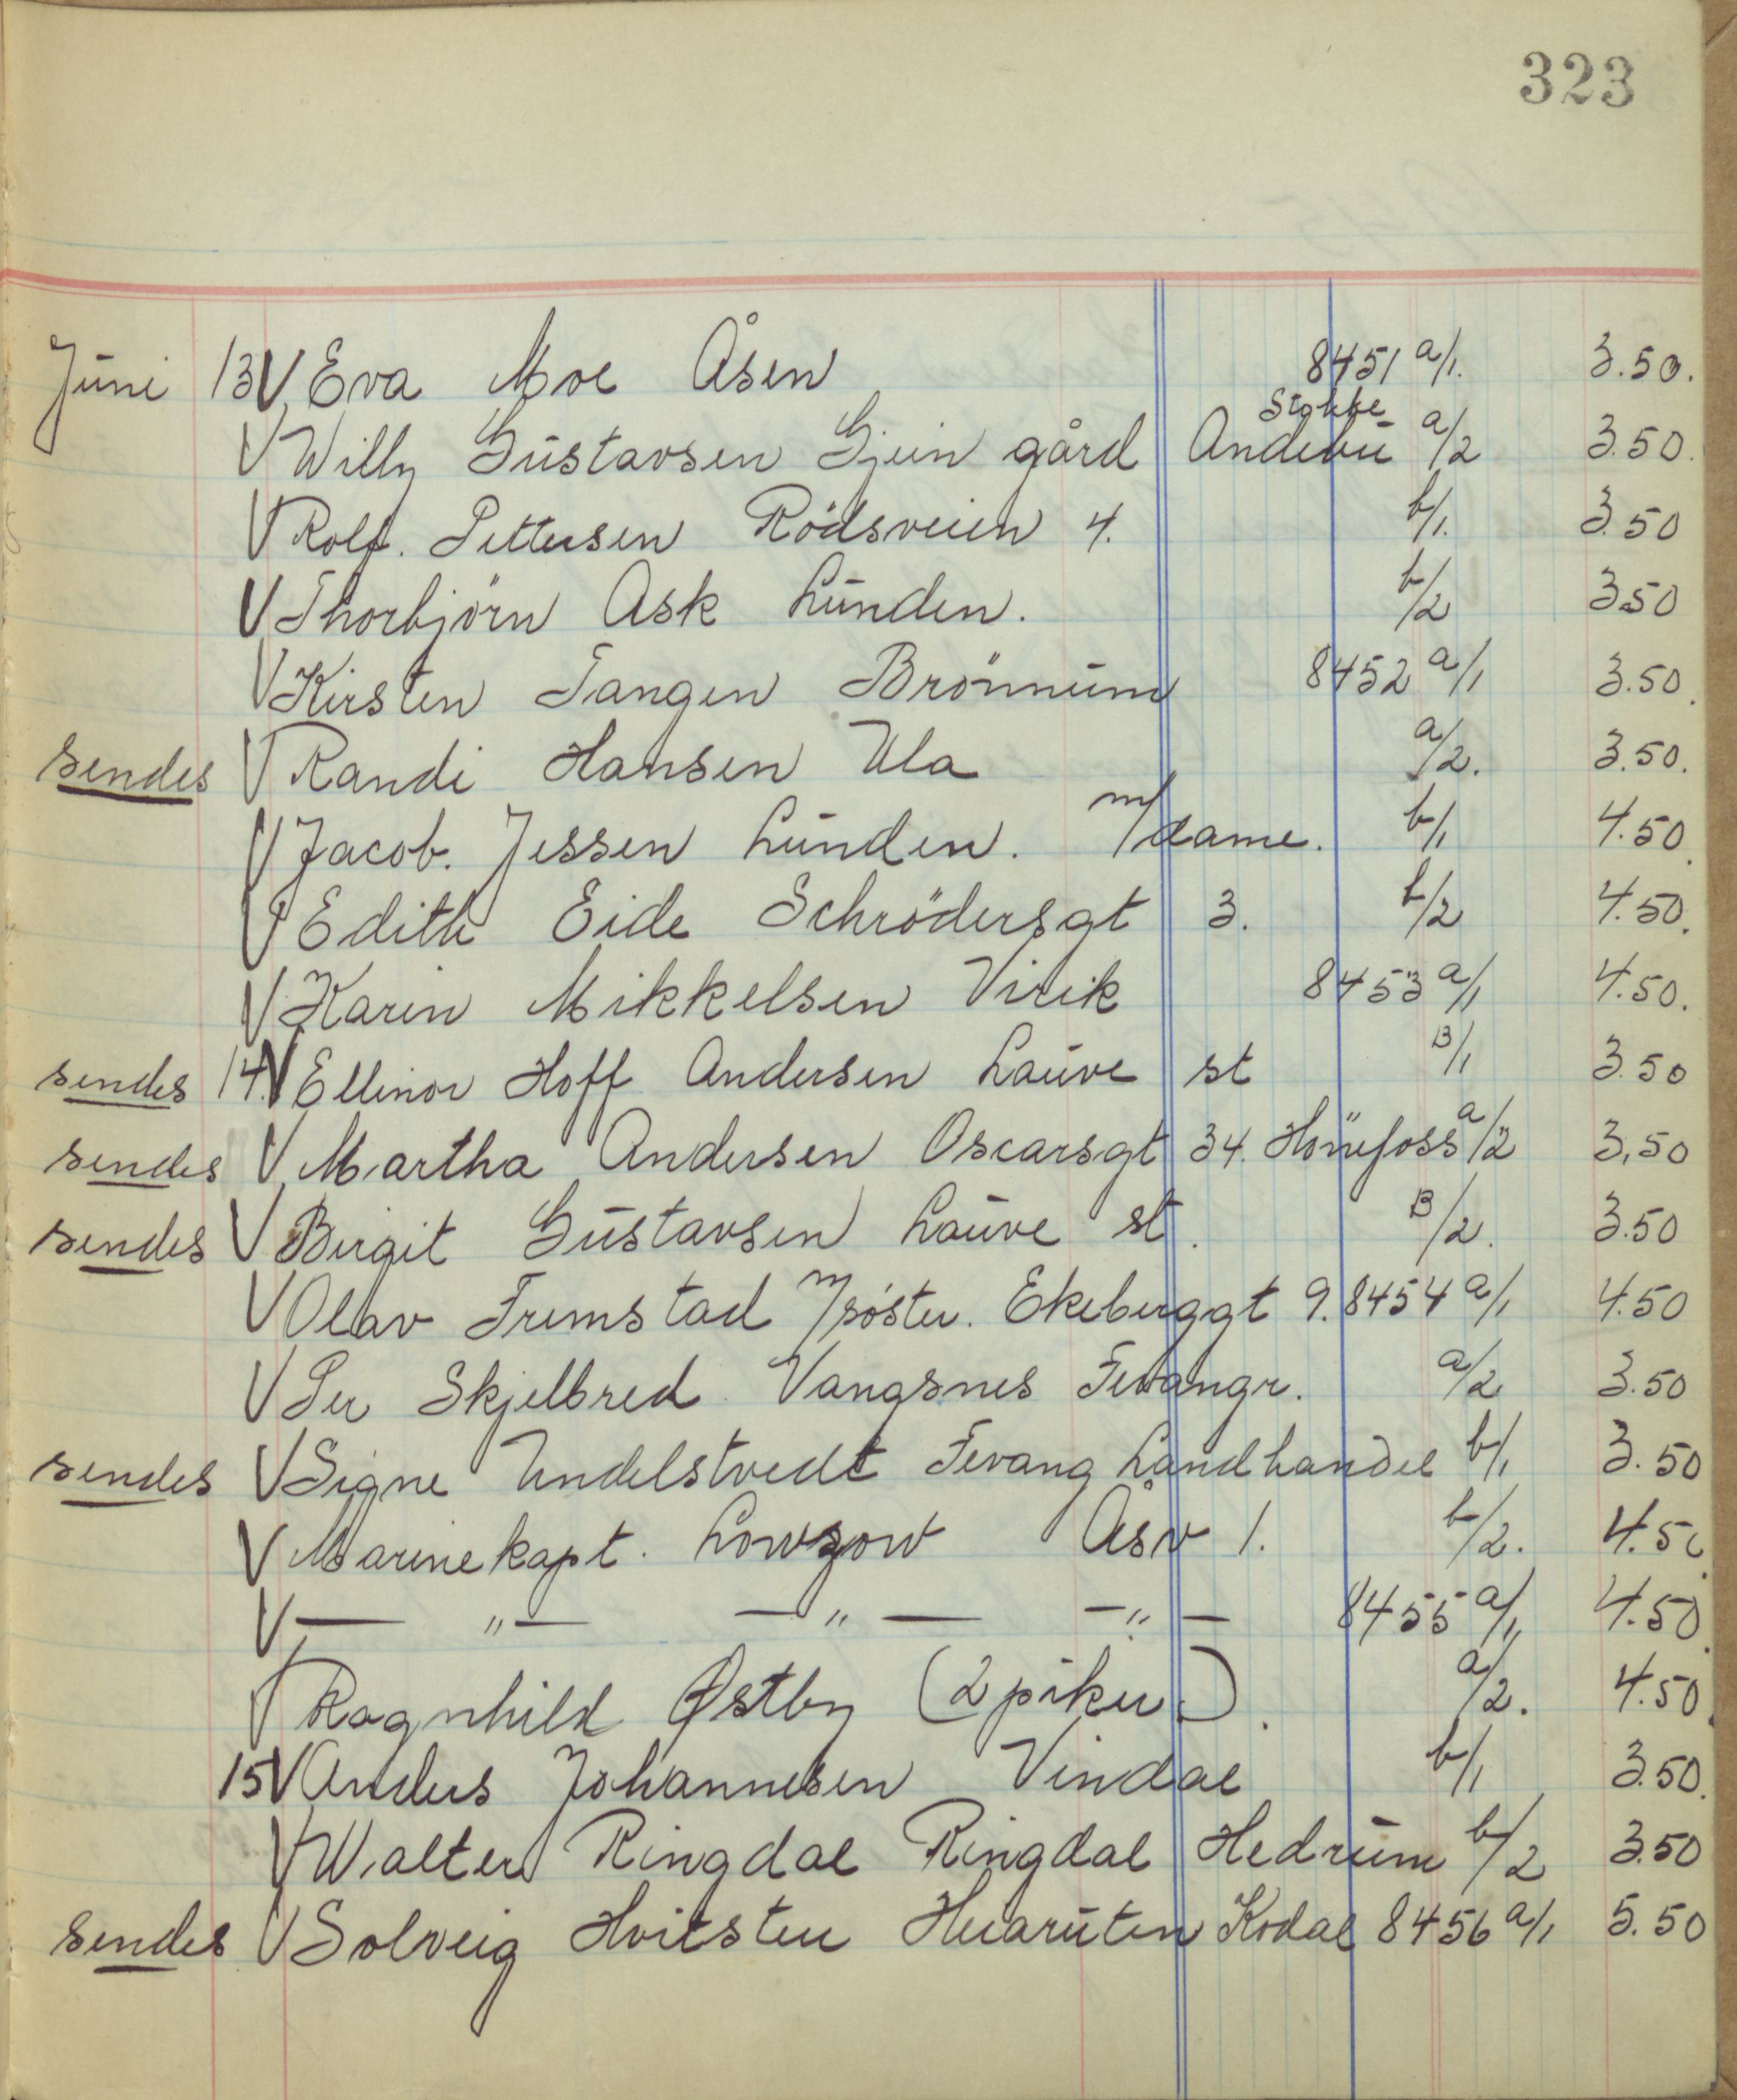 323
Juni 13 V Eva Moe Åsen 8451 a/1. 3.50.
V Willy Gustavsen Gjein gård Stokke Andebu a/2 3.50.
V Rolf. Pettersen Rödsveien 4. b/1. 3.50
V Thorbjörn Ask Lunden. b/2 3.50
V Kirsten Tangen Brönnum 8452 a/1 3.50.
sendes V Randi Hansen Ula a/2. 3.50.
V Jacob. Jessen Lunden. m/dame. b/1 4.50.
V Edith Eide Schrödersgt 3. b/2 4.50.
V Karin Mikkelsen Virik 8453 a/1 4.50.
sendes 14. V Ellinor Hoff Andersen Lauve st B/1 3.50
sendes V Martha Andersen Oscarsgt 34. Hönefoss a/2 3,50
sendes V Birgit Gustavsen Lauve st. B/2. 3.50
V Olav Fremstad m/söster. Ekeberggt 9. 8454 a/1 4.50
V Per Skjelbred Vangsnes Fevangr. a/2 3.50
sendes V Signe Undelstvedt Fevang Landhandel b/1 3.50
V Marinekapt. Lowzow Åsv 1. b/2. 4.50.
V — " — — " — — " — 8455 a/1 4.50.
V Ragnhild Østby (2 piker.). a/2. 4.50.
15 V Anders Johannesen Vindal b/1 3.50.
V Walter Ringdal Ringdal Hedrum b/2 3.50
sendes V Solveig Hvitsten Kodal 8456 a/1 5.50